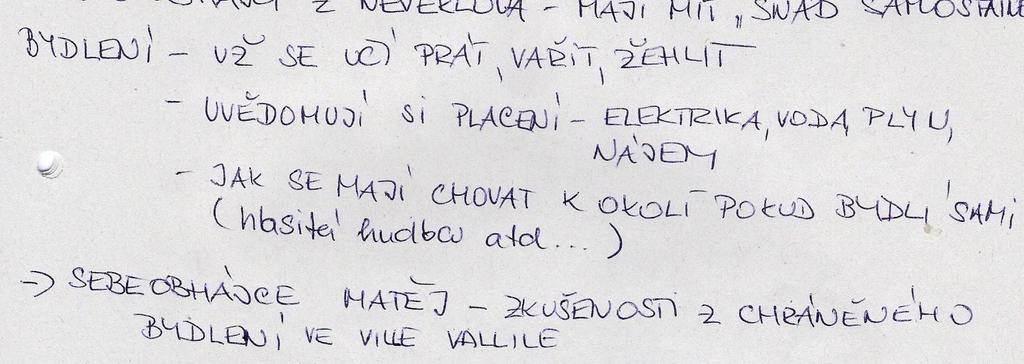 Z NEVEKLOVA – MAJÍ MÍT „SNAD SAMOSTATNÉ
BYDLENÍ – UŽ SE UČÍ PRÁT, VAŘIT, ŽEHLIT
- UVĚDOMUJÍ SI PLACENÍ – ELEKTRIKA, VODA, PLYN,
NÁJEM
- JAK SE MAJÍ CHOVAT K OKOLÍ POKUD BYDLÍ SAMI
(hlasitá hudba atd...)
-> SEBEOBHÁJCE MATĚJ – ZKUŠENOSTI Z CHRÁNĚNÉHO
BYDLENÍ VE VILLE VALLILE